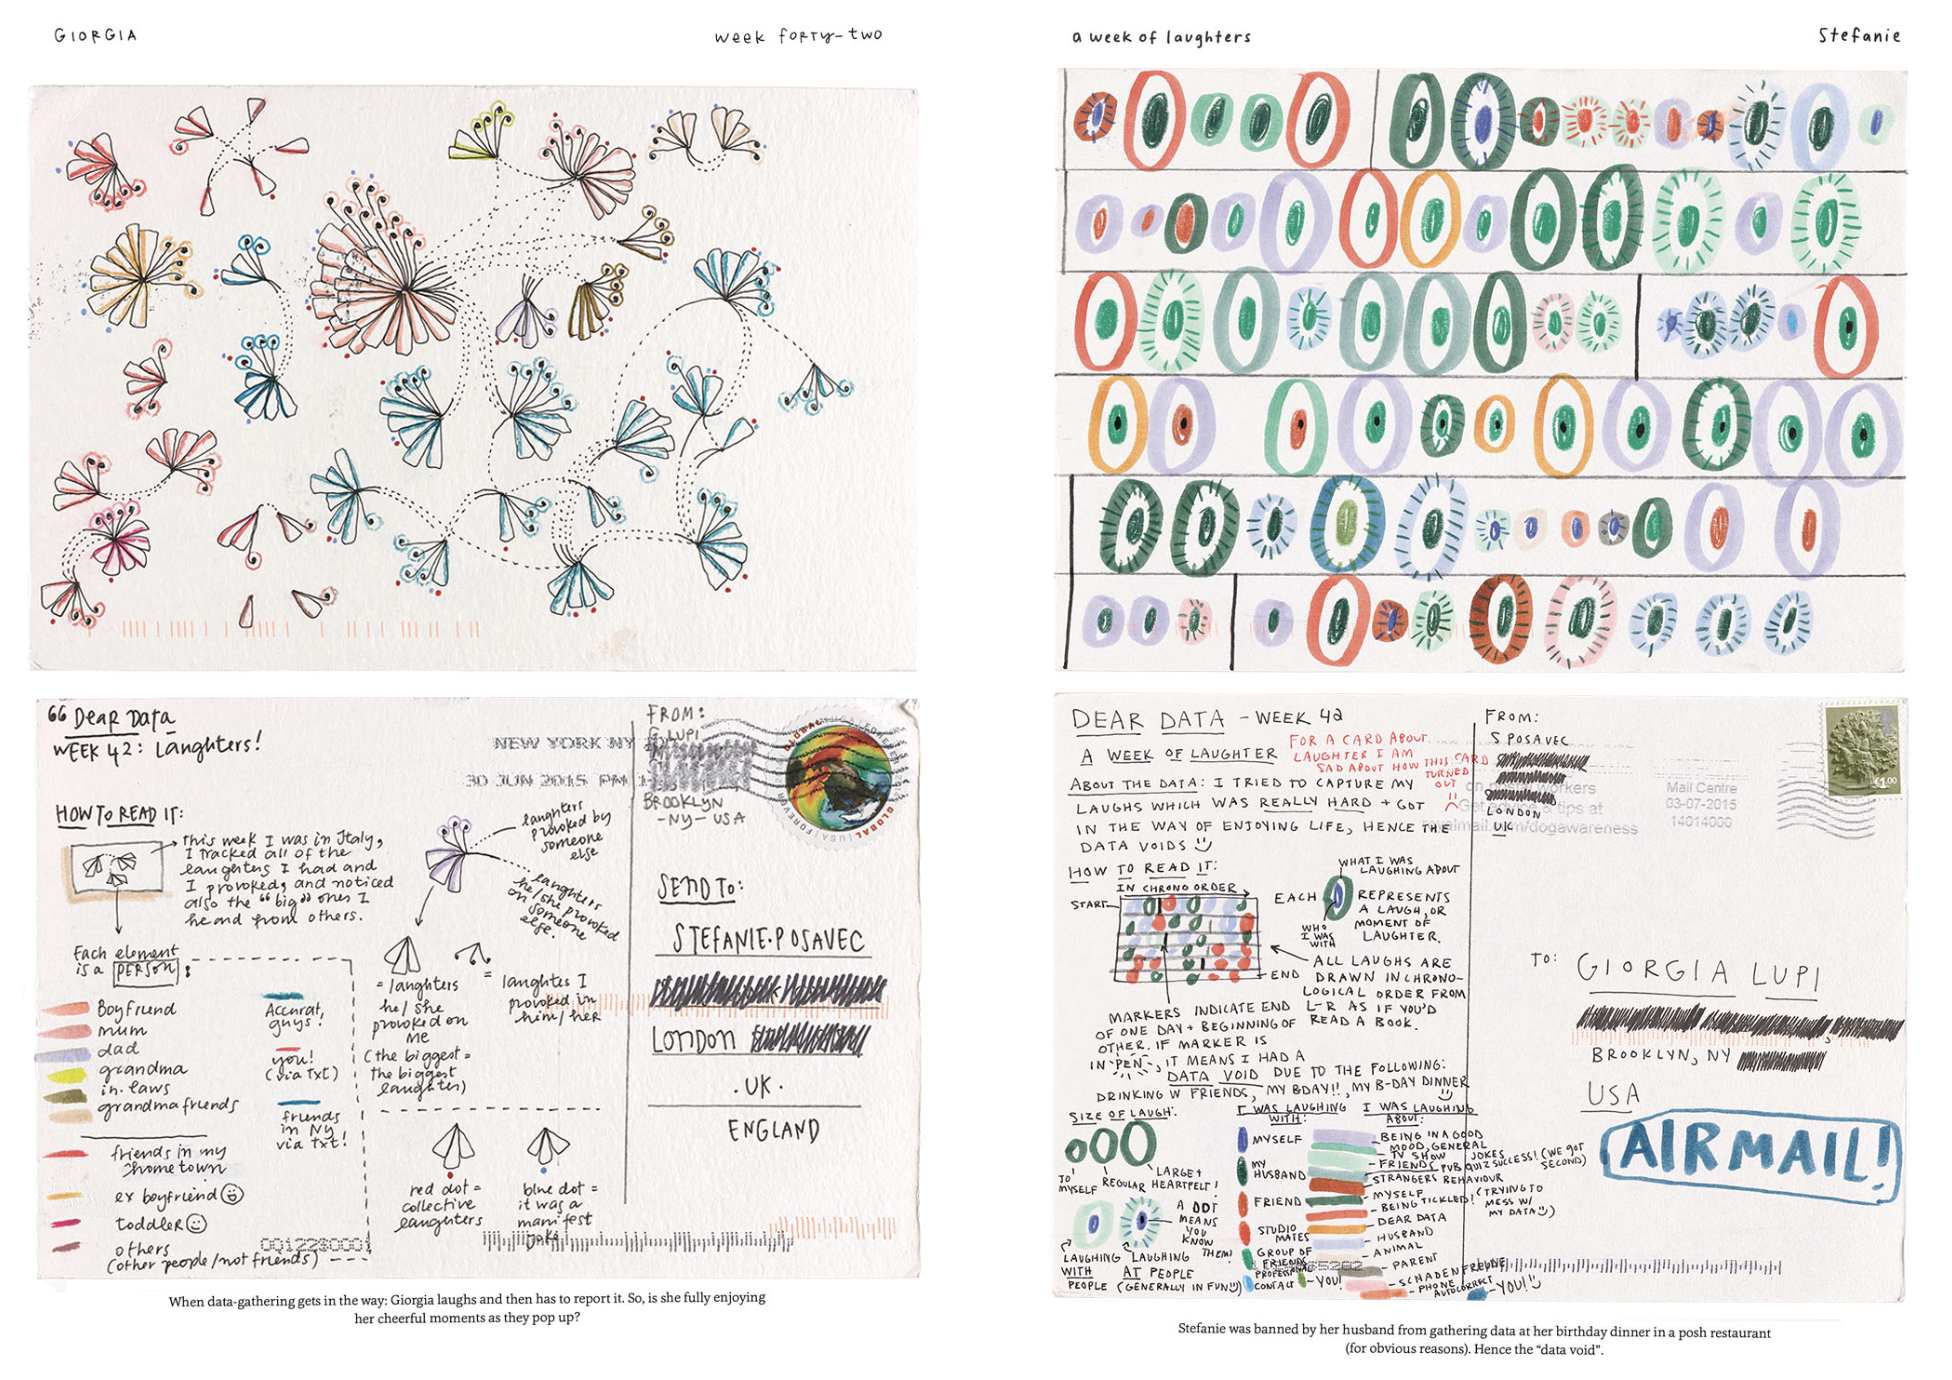 GIORGIA
week forty-two
a week of laughters
Stefanie
Dear Data
WEEK 42: Laughters!
HOW TO READ IT:
this week I was in Italy,
I tracked all of the
laughters I had and
I provoked, and noticed
also the "big" ones I
heard from others.
Each element
is a PERSON:
Boyfriend
mum
dad
grandma
in-laws
grandma friends
friends in my
hometown
ex boyfriend
toddler
others
(other people/not friends)
Accurat,
guys!
you!
(via txt)
friends
in NY
via txt!
laughters
provoked by
someone
else
laughters
he/she provoked
on someone
else.
= laughters
he/she
provoked on
me
(the biggest =
the biggest
laughter)
= laughters I
provoked in
him/her
red dot =
collective
laughters
blue dot =
it was a
manifest
joke
NEW YORK NY
30 JUN 2015 PM 1
FROM:
G. LUPI
BROOKLYN
-NY- USA
GLOBAL
SEND TO:
STEFANIE·POSAVEC
LONDON
·UK·
ENGLAND
When data-gathering gets in the way: Giorgia laughs and then has to report it. So, is she fully enjoying
her cheerful moments as they pop up?
DEAR DATA - WEEK 42
A WEEK OF LAUGHTER
FOR A CARD ABOUT
LAUGHTER I AM
SAD ABOUT HOW THIS CARD
TURNED
OUT
ABOUT THE DATA: I TRIED TO CAPTURE MY
LAUGHS WHICH WAS REALLY HARD + GOT
IN THE WAY OF ENJOYING LIFE, HENCE THE
DATA VOIDS
HOW TO READ IT:
IN CHRONO ORDER
START
END
WHAT I WAS
LAUGHING ABOUT
EACH
WHO
I WAS
WITH
REPRESENTS
A LAUGH, OR
MOMENT OF
LAUGHTER.
ALL LAUGHS ARE
DRAWN IN CHRONO-
LOGICAL ORDER FROM
L-R AS IF YOU'D
READ A BOOK.
MARKERS INDICATE END
OF ONE DAY + BEGINNING OF
OTHER. IF MARKER IS
IN "PEN", IT MEANS I HAD A
DATA VOID DUE TO THE FOLLOWING:
DRINKING W FRIENDS, MY BDAY!!, MY B-DAY DINNER
SIZE OF LAUGH:
TO
MYSELF
REGULAR
LARGE +
HEARTFELT!
A DOT
MEANS
YOU
KNOW
THEM
LAUGHING
WITH
PEOPLE
LAUGHING
AT PEOPLE
(GENERALLY IN FUN)
I WAS LAUGHING
WITH:
MYSELF
MY
HUSBAND
FRIEND
STUDIO
MATES
GROUP OF
FRIENDS
PROFESSIONAL
CONTACT
YOU!
I WAS LAUGHING
ABOUT:
BEING IN A GOOD
MOOD, GENERAL
TV SHOW
JOKES
FRIENDS
PUB QUIZ SUCCESS! (WE GOT
SECOND)
STRANGERS BEHAVIOUR
MYSELF
BEING TICKLED! (TRYING TO
MESS W/
MY DATA)
DEAR DATA
HUSBAND
ANIMAL
PARENT
SCHADENFREUDE
PHONE AUTOCORRECT
YOU!
FROM:
S POSAVEC
LONDON
UK
Mail Centre
03-07-2015
14014000
£1.00
TO:
GIORGIA LUPI
BROOKLYN, NY
USA
AIRMAIL!
Stefanie was banned by her husband from gathering data at her birthday dinner in a posh restaurant
(for obvious reasons). Hence the "data void".